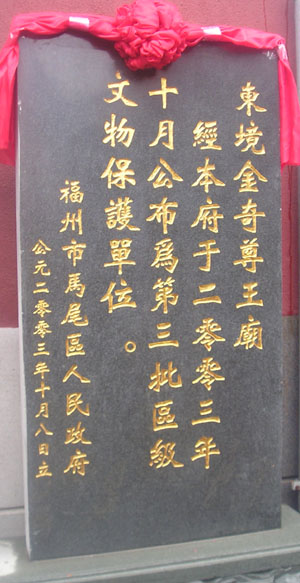 東境金奇尊王廟
經本府于二零零三年
十月公布爲第三批區級
文物保護單位。
福州市馬尾區人民政府
公元二零零三年十月八日立